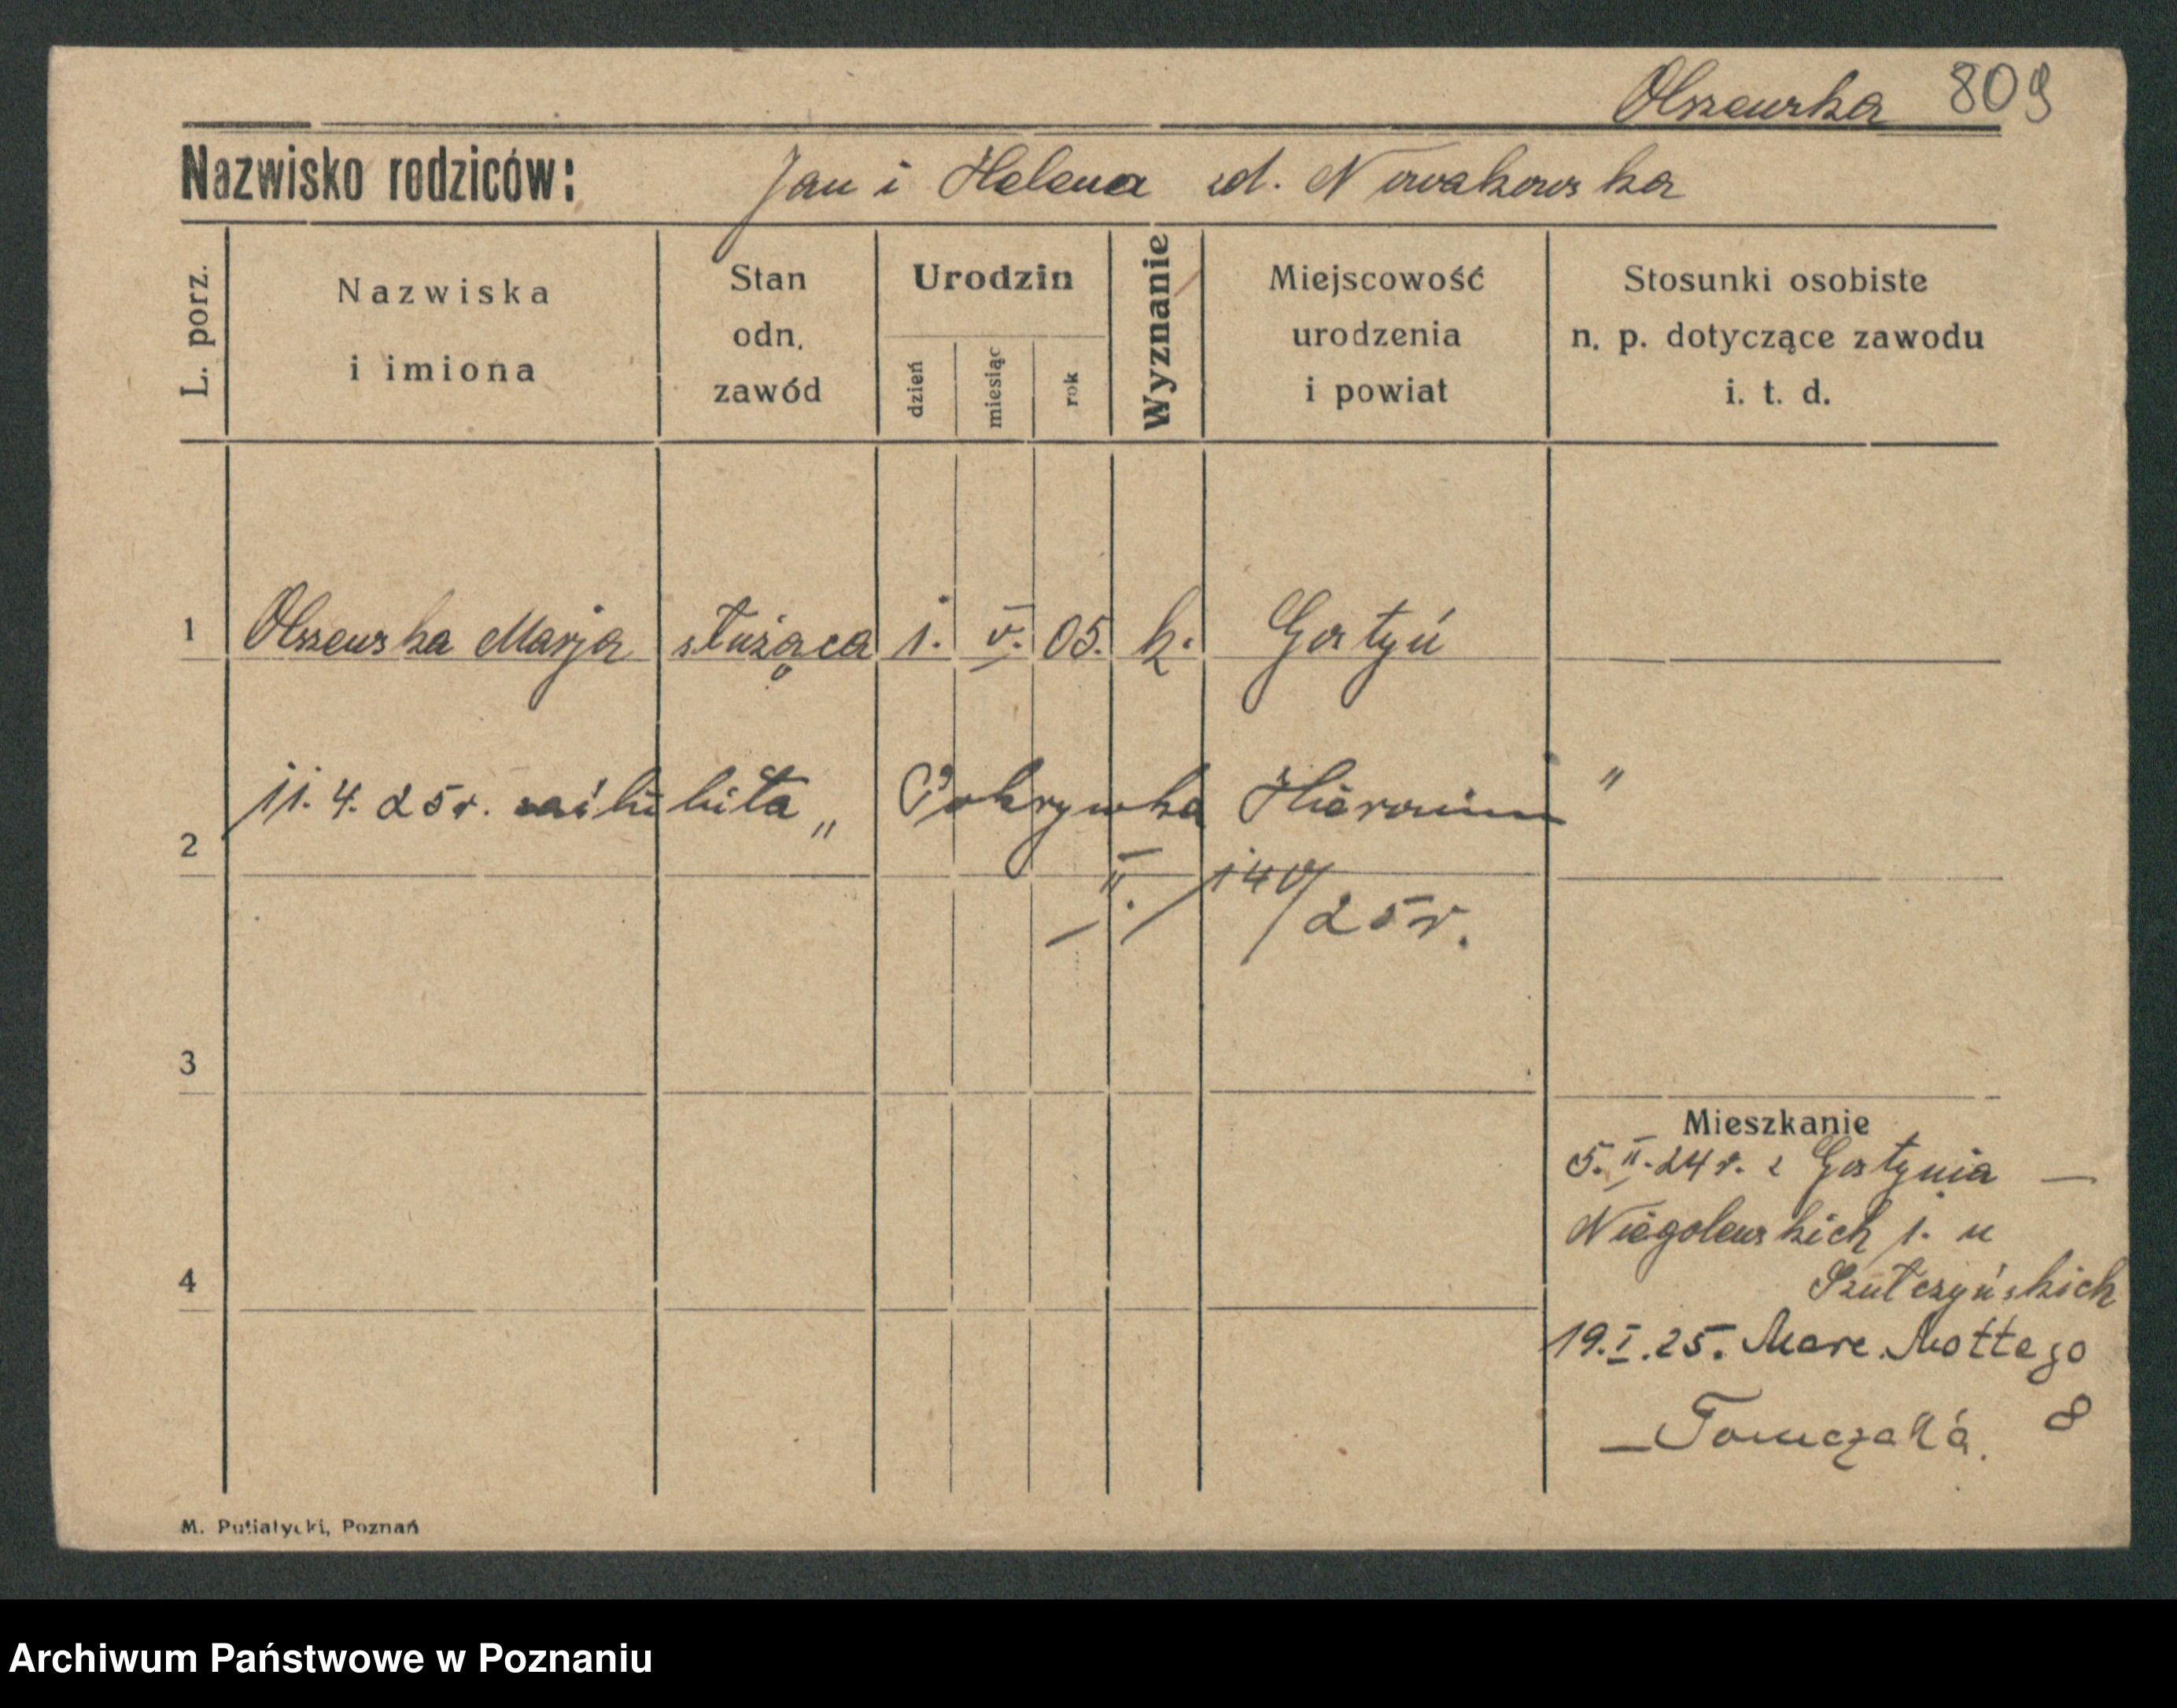 Olszewska 809
Nazwisko rodziców: Jan i Helena zd. Nowakowska
L. porz.
Nazwiska
i imiona
Stan
odn.
zawód
Urodzin
dzień
miesiąc
rok
Wyznanie
Miejscowość
urodzenia
i powiat
Stosunki osobiste
n. p. dotyczące zawodu
i. t. d.
1 Olszewska Marja służąca 1. V. 05. k. Gostyń
11. 4. 25 r. zaślubiła „ Pokrywka Hieronim "
2
II. / 140/25 r.
3
Mieszkanie
5. II. 24 r. z Gostynia —
Niegolewskich 1. u
4
Szułczyńskich
19. I. 25. Marc. Mottego
8
— Tomczaka.
M. Putiatycki, Poznań
Archiwum Państwowe w Poznaniu